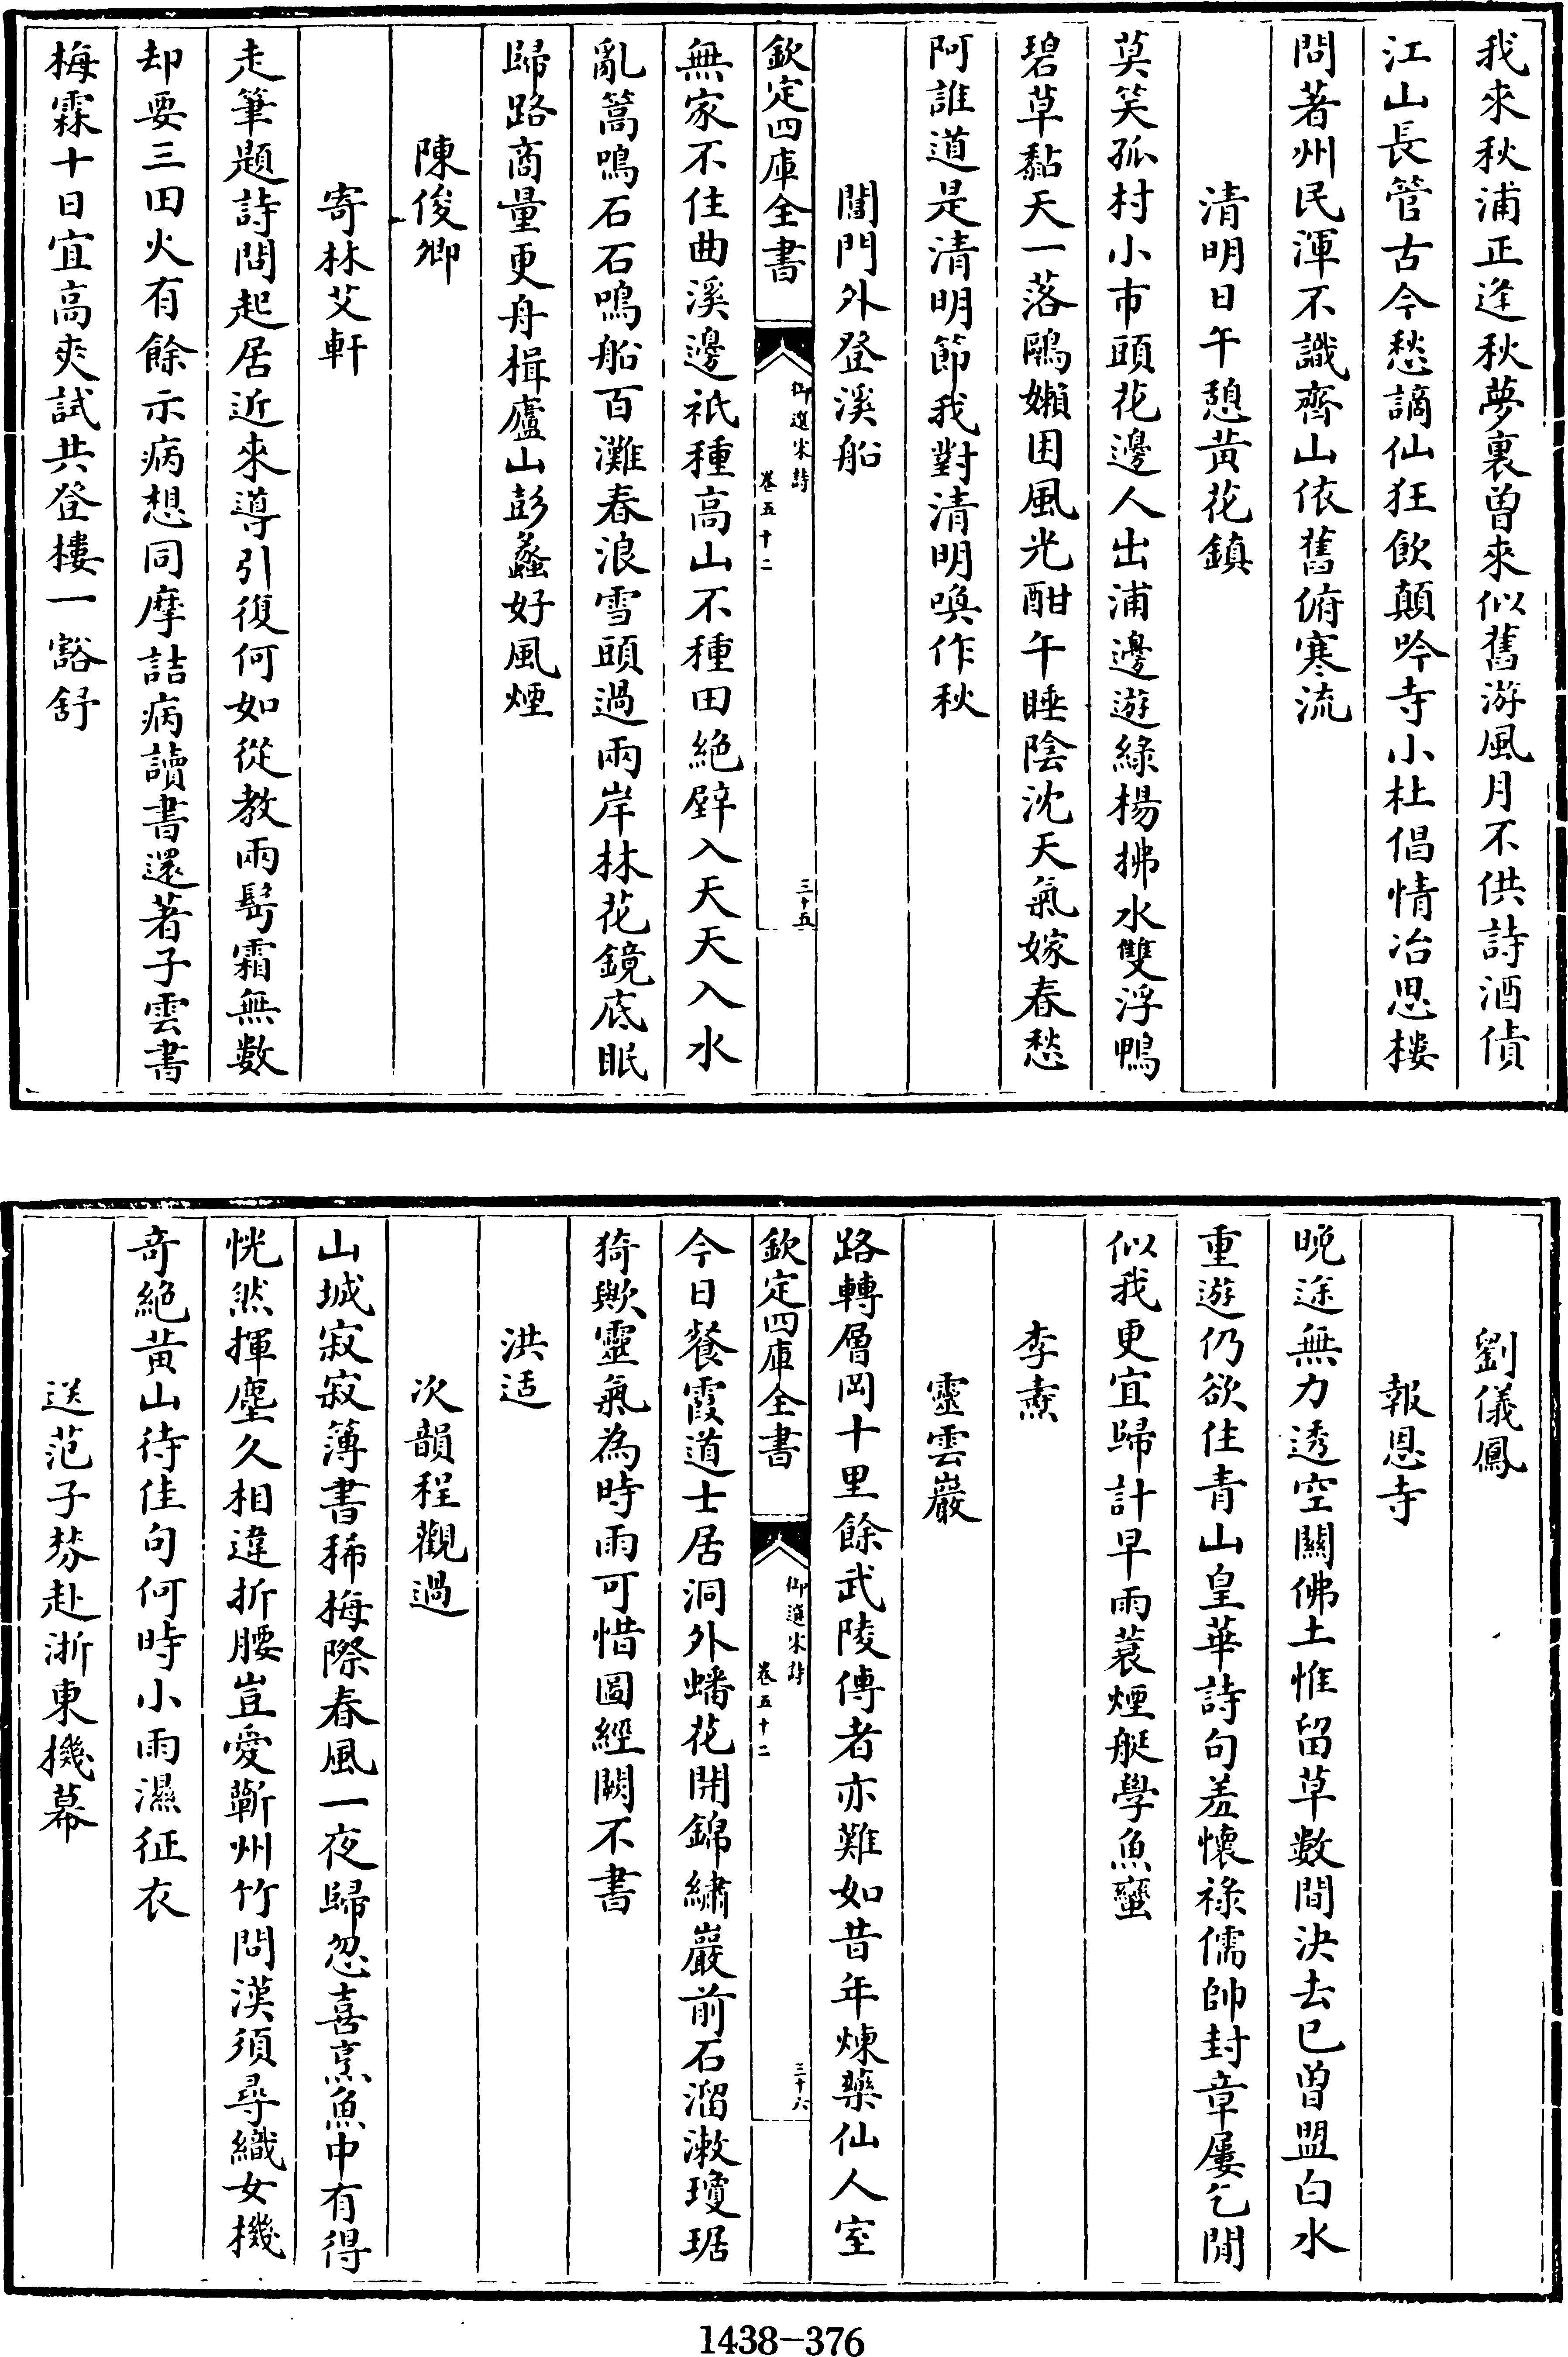 我來秋浦正逢秋夢裏曾來似舊游風月不供詩酒債
江山長管古今愁謫仙狂飲顛吟寺小杜倡情冶思樓
問著州民渾不識齊山依舊俯寒流
清明日午憩黃花鎮
莫笑孤村小市頭花邊人出浦邊遊綠楊拂水雙浮鴨
碧草黏天一落鷗嬾困風光酣午睡陰沈天氣嫁春愁
阿誰道是清明節我對清明喚作秋
閶門外登溪船
欽定四庫全書
御選宋詩
卷五十二
三十五
無家不住曲溪邊祇種高山不種田絕壁入天天入水
亂篙鳴石石鳴船百灘春浪雪頭過兩岸林花鏡底眠
歸路商量更舟楫廬山彭蠡好風煙
陳俊卿
寄林艾軒
走筆題詩問起居近來導引復何如從教兩髩霜無數
却要三田火有餘示病想同摩詰病讀書還著子雲書
梅霖十日宜高爽試共登樓一豁舒
劉儀鳳
報恩寺
晚途無力透空關佛土惟留草數間決去已曾盟白水
重遊仍欲住青山皇華詩句羞懷祿儒帥封章屢乞閒
似我更宜歸計早雨蓑煙艇學魚蠻
李燾
靈雲巖
路轉層岡十里餘武陵傳者亦難如昔年煉藥仙人室
欽定四庫全書
御選宋詩
卷五十二
三十六
今日餐霞道士居洞外蟠花開錦繡巖前石溜漱瓊琚
猗歟靈氣為時雨可惜圖經闕不書
洪适
次韻程觀過
山城寂寂簿書稀梅際春風一夜歸忽喜烹魚中有得
恍然揮麈久相違折腰豈愛蘄州竹問漢須尋織女機
奇絕黃山待佳句何時小雨濕征衣
送范子芬赴浙東機幕
1438-376